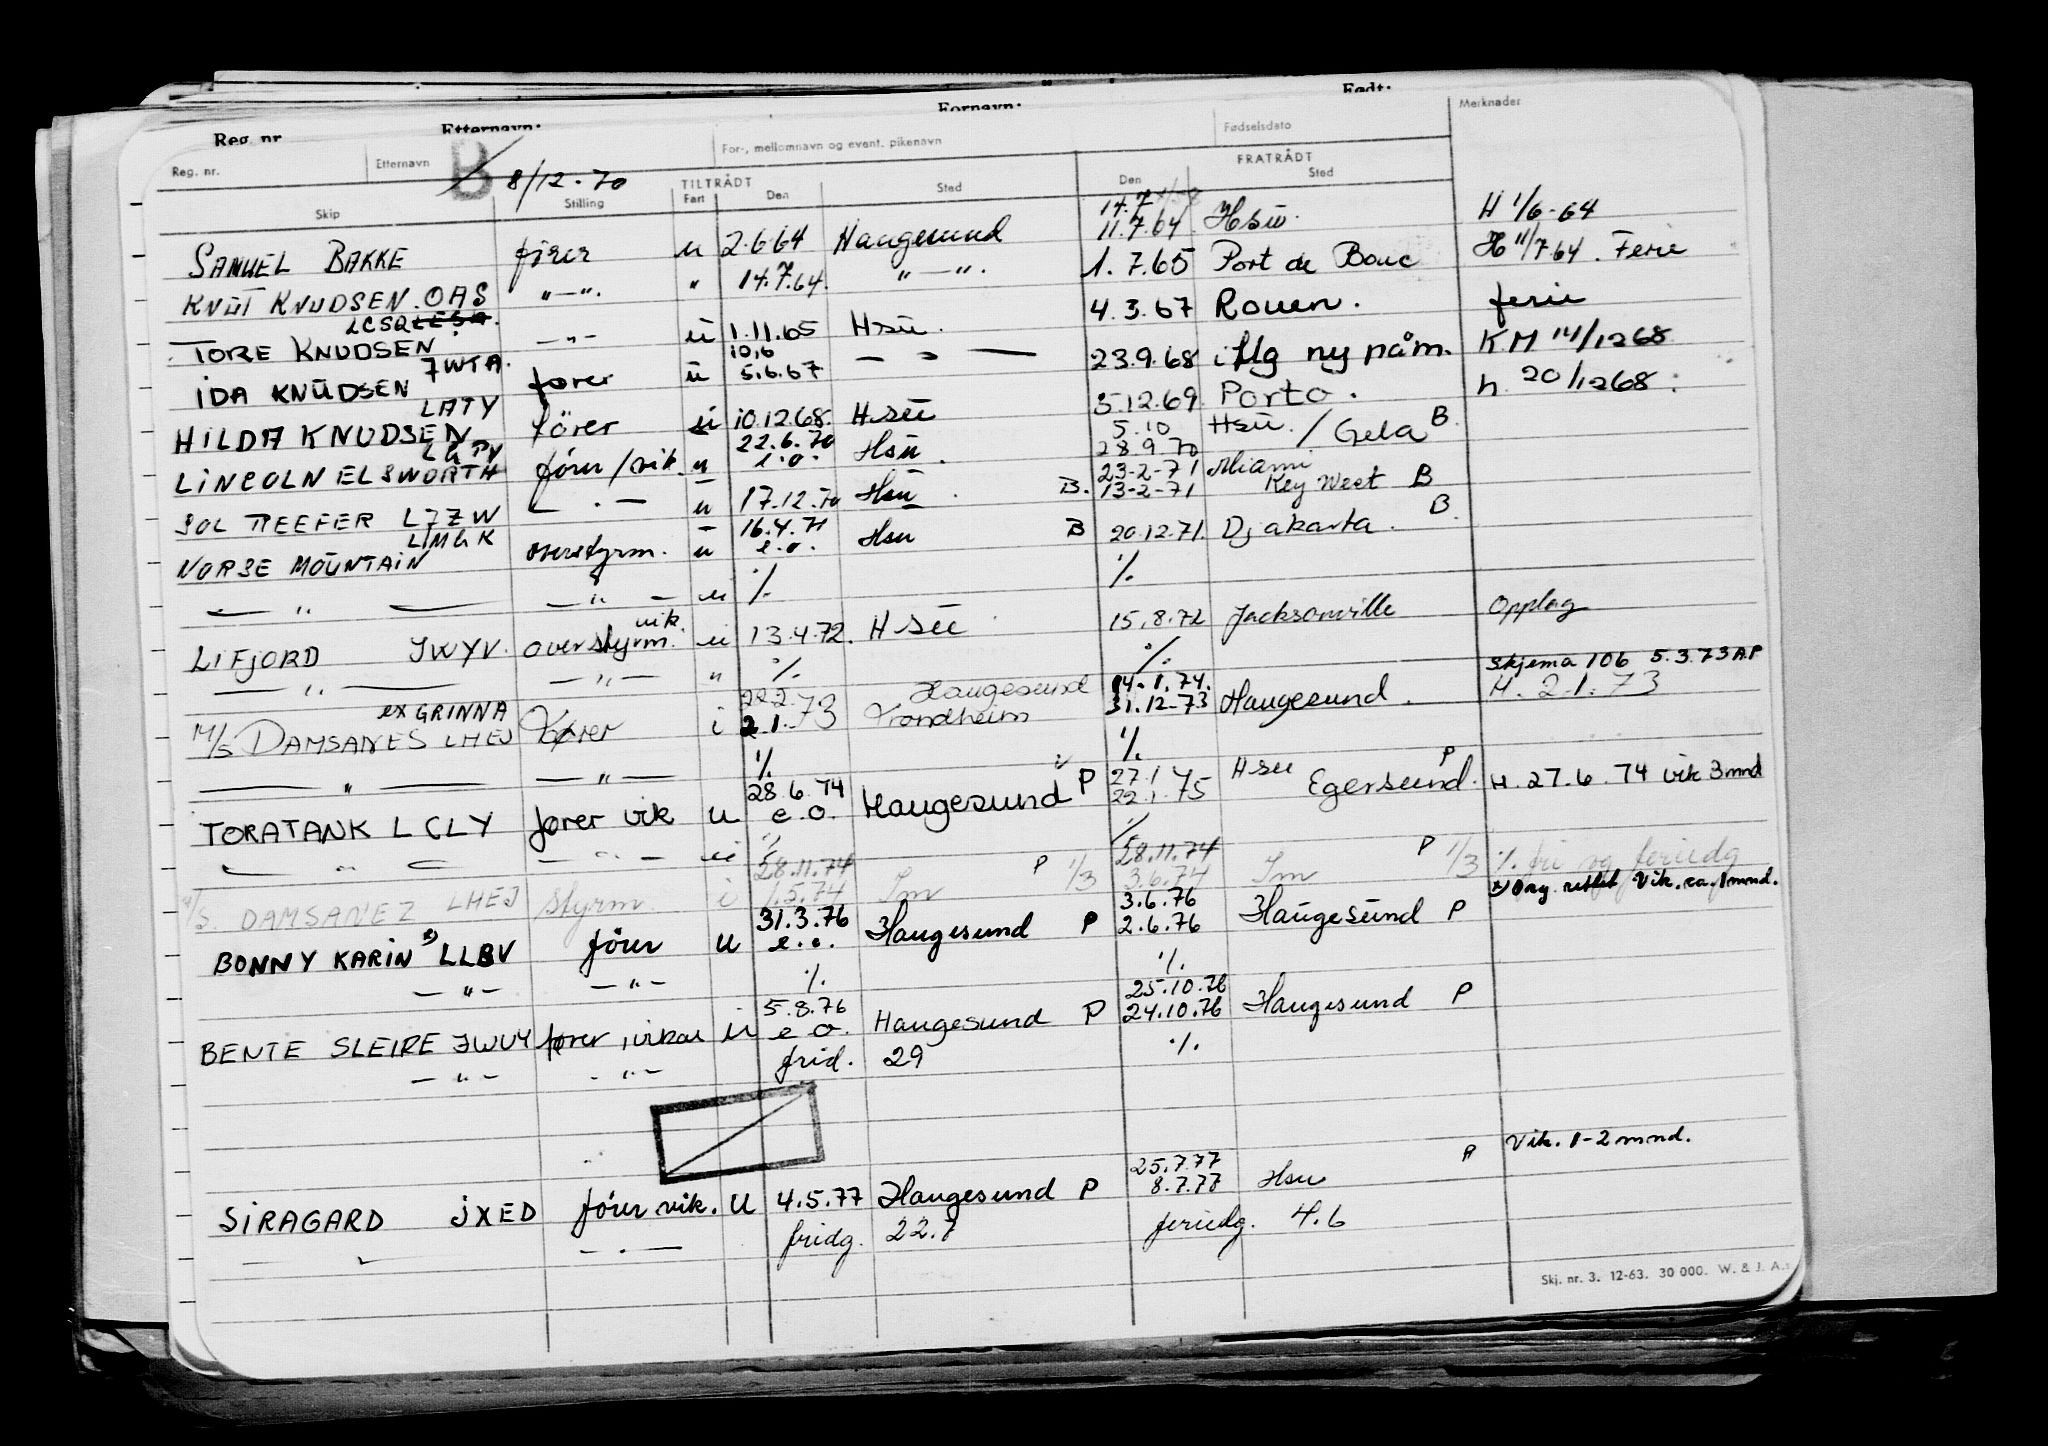 Reg. nr. Etternavn: Fornavn: Født:
Reg. nr. Etternavn B 8/12-70 For-, mellomnavn og event. pikenavn Fødselsdato Merknader
TILTRÅDT FRATRÅDT
Skip Stilling Fart Den Sted Den Sted
14.7
SAMUEL BAKKE fører u 2.6.64 Haugesund 11.7.64 Hsu. H 1/6-64
KNUT KNUDSEN OAS "—". " 14.7.64. " —". 1.7.65 Port de Bouc H 11/7.64. Ferie
LCSQ
TORE KNUDSEN —"— u 1.11.65 Hsu. 4.3.67 Rouen. ferie
JWTA. 10.6
IDA KNUDSEN fører u 5.6.67 — " — 23.9.68 i Hg ny påm. KM 14/1268
LATY
HILDA KNUDSEN fører u 10.12.68. Hsu 5.12.69 Porto. h. 20/1268.
22.6.70 5.10 Hsu. / Gela B.
LINCOLN ELSWORTH fører/vik. u e.o. Hsu. 28.9.70
23-2-71 Miami
SOL REEFER LJZW — . — u 17.12.70 Hsu. B. 13-2-71 Key West B
LMGK 16.4.71 B.
NORSE MOUNTAIN overstyrm. u e.o. Hsu B 20.12.71. Djakarta.
— " — — " — u %. %.
vik.
LIFJORD JWYV. overstyrm. u 13.4.72. Hsu 15.8.72 Jacksonville Opplag
— " — — " — " %. %. Skjema 106 5.3.73 AP
ex GRINNA 22.2 Haugesund 14.1.74.
M/S DAMSANES LHEJ Fører i 2.1.73 Trondheim 31.12-73 Haugesund. H. 2.1.73
— " — — " — %. %.
28.6.74 27.1 Hsu P
TORATANK LCLY fører vik u e.o. Haugesund P 22.1.75 Egersund. H. 27.6.74 vik 3 mnd
— " — — " — u %. %.
28.11.74 P 1/3 28.11.74 P 1/3 %. fri og feriedg
M/S. DAMSANEZ LHEJ styrm. i 1.5.74 Im 3.6.74 Im
31.3.76 3.6.76 x) Vik. ca. 1 mnd.
BONNY KARIN x) LLBV fører u e.o. Haugesund P 2.6.76 Haugesund P
— " — — " — %. %.
5.8.76 25.10.76
BENTE SLEIRE JWUY fører, vikar u e.o. Haugesund P 24.10.76 Haugesund P
— " — - " — frid. 29 %.
25.7.77 P Vik. 1-2 mnd.
SIRAGARD JXED fører vik. U 4.5.77 Haugesund P 8.7.77 Hsu
— " — — . — fridg. 22.7 feriedg. 4.6
Skj. nr. 3. 12-63. 30 000. W. & J. A.s